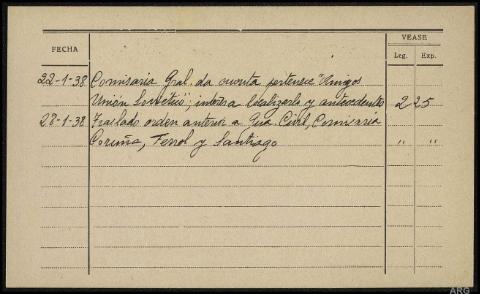 FECHA
VEASE
Leg. Exp.
22-1-38. Comisaria Gral. da cuenta pertenece "Amigos
Unión Sovietica"; interesa localizarlo y antecedentes 2 25
28-1-38. Traslado orden anterior a Gua. Civil, Comisaria
Coruña, Ferrol y Santiago " "
ARG